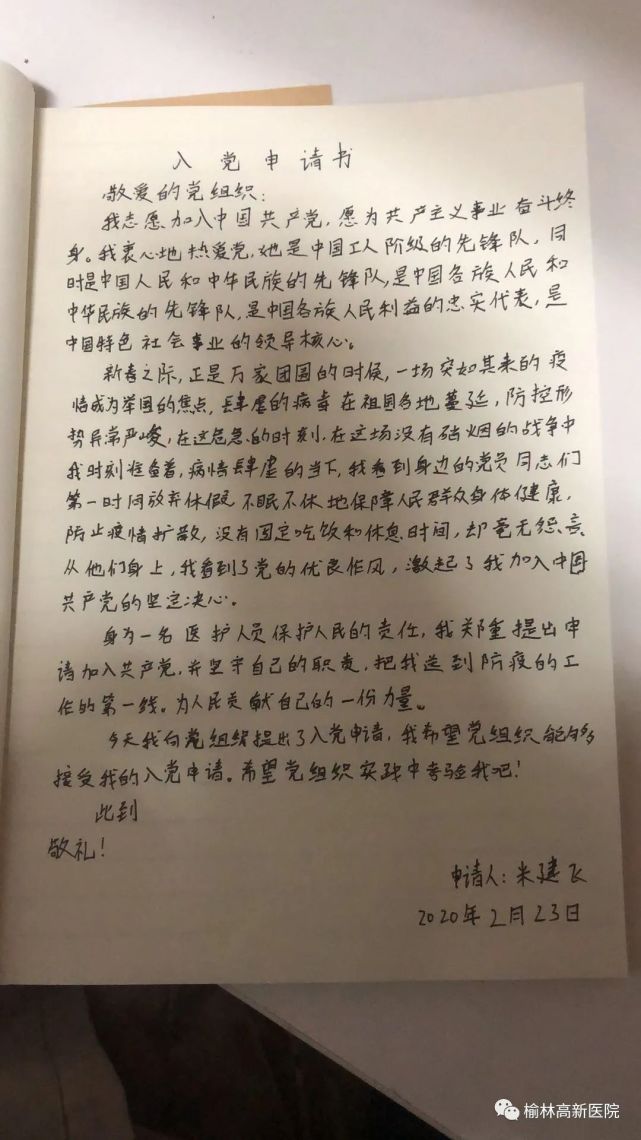 入党申请书
敬爱的党组织:
我志愿加入中国共产党,愿为共产主义事业奋斗终
身。我衷心地热爱党,她是中国工人阶级的先锋队,同
时是中国人民和中华民族的先锋队,是中国各族人民和
中华民族的先锋队,是中国各族人民利益的忠实代表,是
中国特色社会事业的领导核心。
新春之际,正是万家团圆的时候,一场突如其来的疫
情成为举国的焦点,肆虐的病毒在祖国各地蔓延,防控形
势异常严峻,在这危急的时刻,在这场没有硝烟的战争中
我时刻准备着,病情肆虐的当下,我看到身边的党员同志们
第一时间放弃休假 不眠不休地保障人民群众身体健康,
防止疫情扩散,没有固定吃饭和休息时间,却毫无怨言
从他们身上,我看到了党的优良作风,激起了我加入中国
共产党的坚定决心。
身为一名医护人员保护人民的责任,我郑重提出申
请加入共产党,并坚守自己的职责,把我送到防疫的工
作的第一线。为人民贡献自己的一份力量。
今天我向党组织提出了入党申请,我希望党组织能够
接受我的入党申请。希望党组织实践中考验我吧!
此到
敬礼!
申请人:米建飞
2020年2月23日
榆林高新医院